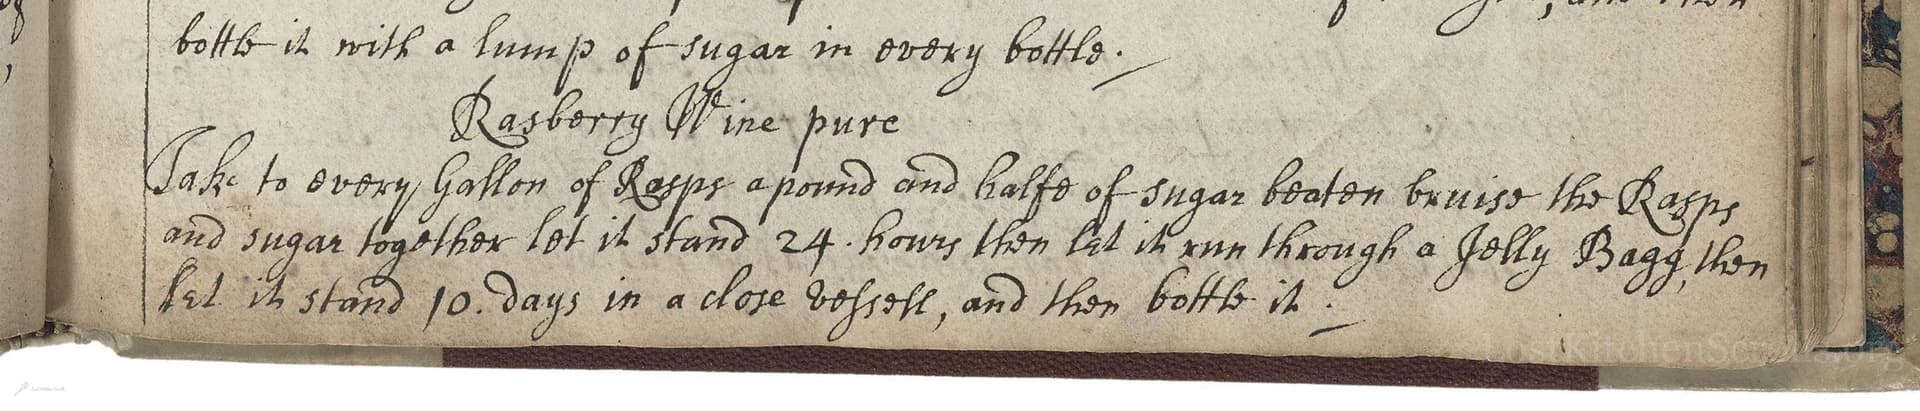 bottle it with a lump of sugar in every bottle.
Rasberry Wine pure
Take to every Gallon of Rasps a pound and halfe of sugar beaten bruise the Rasps
and sugar together let it stand 24. hours then let it run through a Jelly Bagg, then
let it stand 10. days in a close vessell, and then bottle it.